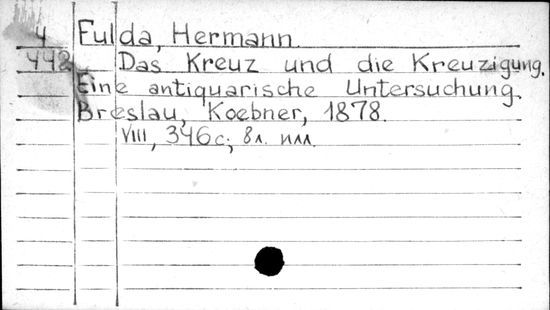 4 Fulda, Hermann.
442 Das Kreuz und die Kreuzigung.
Eine antiquarische Untersuchung.
Breslau, Koebner, 1878.
VIII, 346 с; 8 л. илл.